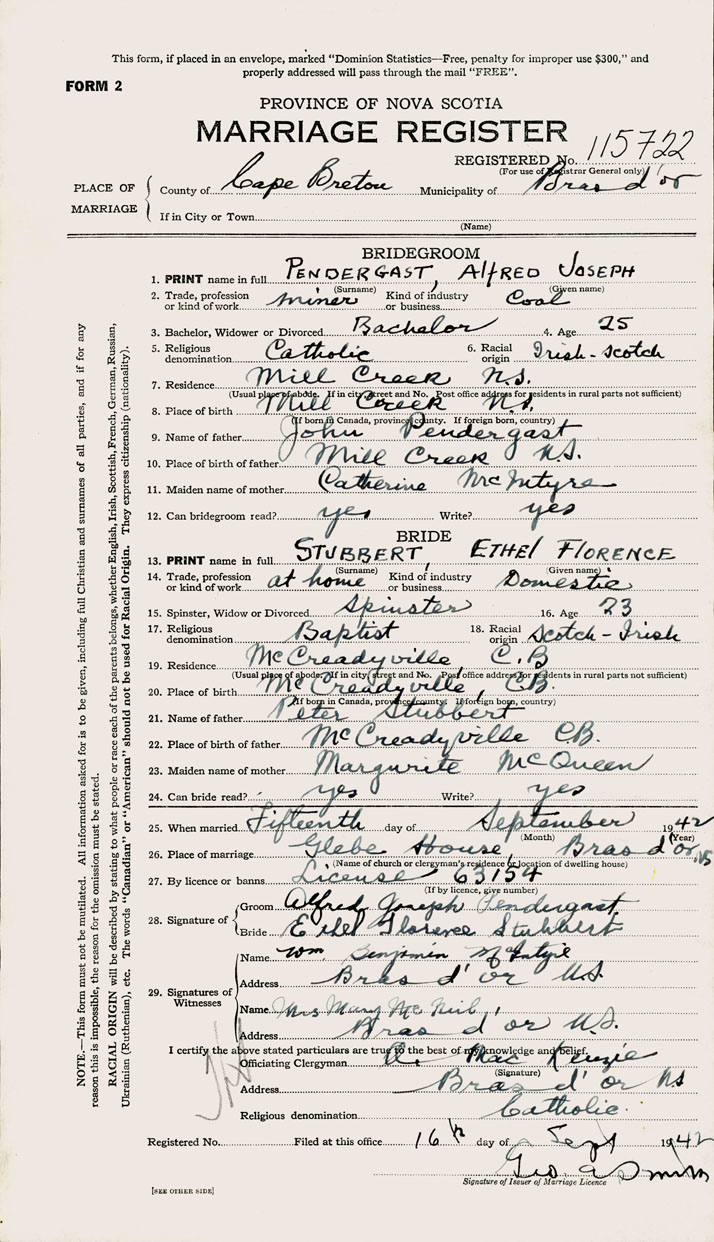 This form, if placed in an envelope, marked "Dominion Statistics—Free, penalty for improper use $300," and
properly addressed will pass through the mail "FREE".
FORM 2
PROVINCE OF NOVA SCOTIA
MARRIAGE REGISTER
REGISTERED No. 115722
(For use of Registrar General only)
PLACE OF MARRIAGE
County of Cape Breton Municipality of Bras d'or
If in City or Town
(Name)
BRIDEGROOM
1. PRINT name in full PENDERGAST, ALFRED JOSEPH
(Surname) (Given name)
2. Trade, profession or kind of work miner Kind of industry or business Coal
3. Bachelor, Widower or Divorced Bachelor 4. Age 25
5. Religious denomination Catholic 6. Racial origin Irish-Scotch
7. Residence Mill Creek N.S.
(Usual place of abode. If in city street and No. Post office address for residents in rural parts not sufficient)
8. Place of birth Mill Creek N.S.
(If born in Canada, province, county. If foreign born, country)
9. Name of father John Pendergast
10. Place of birth of father Mill Creek N.S.
11. Maiden name of mother Catherine McIntyre
12. Can bridegroom read? yes Write? yes
BRIDE
13. PRINT name in full STUBBERT, ETHEL FLORENCE
(Surname) (Given name)
14. Trade, profession or kind of work at home Kind of industry or business Domestic
15. Spinster, Widow or Divorced Spinster 16. Age 23
17. Religious denomination Baptist 18. Racial origin Scotch-Irish
19. Residence McCreadyville, C.B
(Usual place of abode. If in city street and No. Post office address for residents in rural parts not sufficient)
20. Place of birth McCreadyville, CB.
(If born in Canada, province, county. If foreign born, country)
21. Name of father Peter Stubbert
22. Place of birth of father McCreadyville CB.
23. Maiden name of mother Margurite McQueen
24. Can bride read? yes Write? yes
25. When married Fifteenth day of September 1942
(Month) (Year)
26. Place of marriage Glebe House, Bras d'or, NS
(Name of church or clergyman's residence or location of dwelling house)
27. By licence or banns License 63154
(If by licence, give number)
28. Signature of
Groom Alfred Joseph Pendergast
Bride Ethel Florence Stubbert
29. Signatures of Witnesses
Name Wm Benjamin McIntyre
Address Bras d'or N.S.
Name Mrs Mary McNeil
Address Bras d'or N.S.
I certify the above stated particulars are true to the best of my knowledge and belief.
Officiating Clergyman MacKenzie
(Signature)
Address Bras d'or NS
Religious denomination Catholic
Registered No. Filed at this office 16th day of Sept 1942
Geo a Smith
Signature of Issuer of Marriage Licence
[SEE OTHER SIDE]
NOTE.—This form must not be mutilated. All information asked for is to be given, including full Christian and surnames of all parties, and if for any
reason this is impossible, the reason for the omission must be stated.
RACIAL ORIGIN will be described by stating to what people or race each of the parents belongs, whether English, Irish, Scottish, French, German, Russian,
Ukrainian (Ruthenian), etc. The words "Canadian" or "American" should not be used for Racial Origin. They express citizenship (nationality).